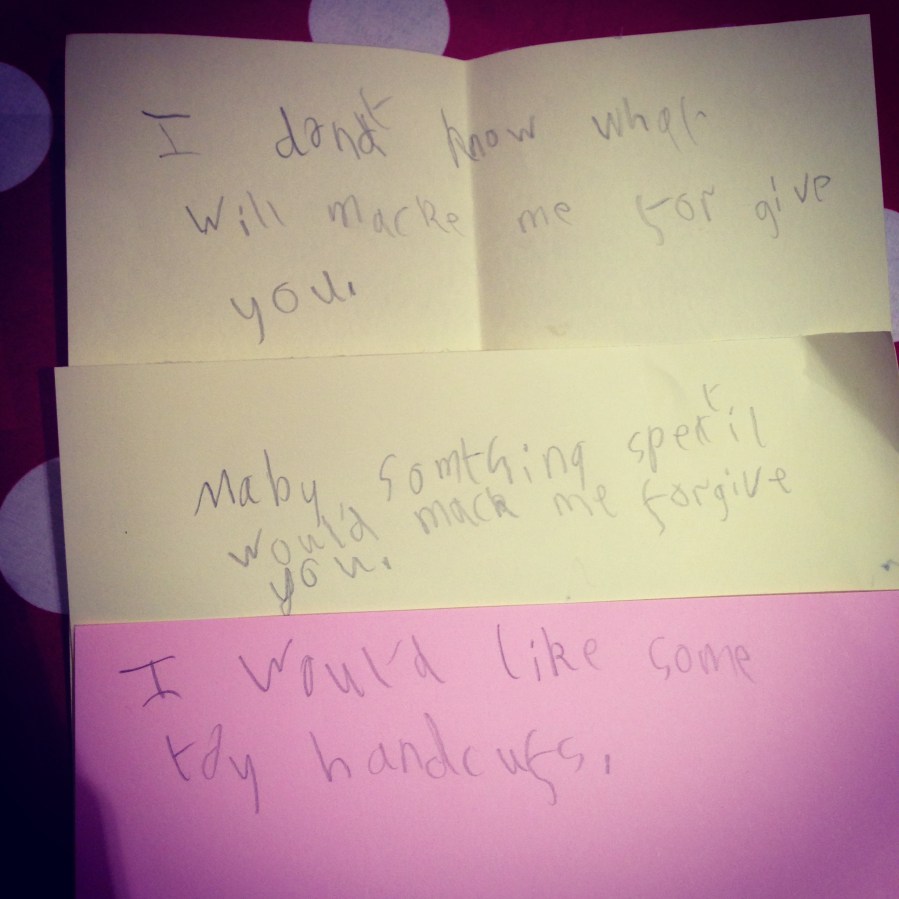 I don't know what
will macke me for give
you.
Maby somthing spertil
would mack me forgive
you.
I would like some
toy handcufs.